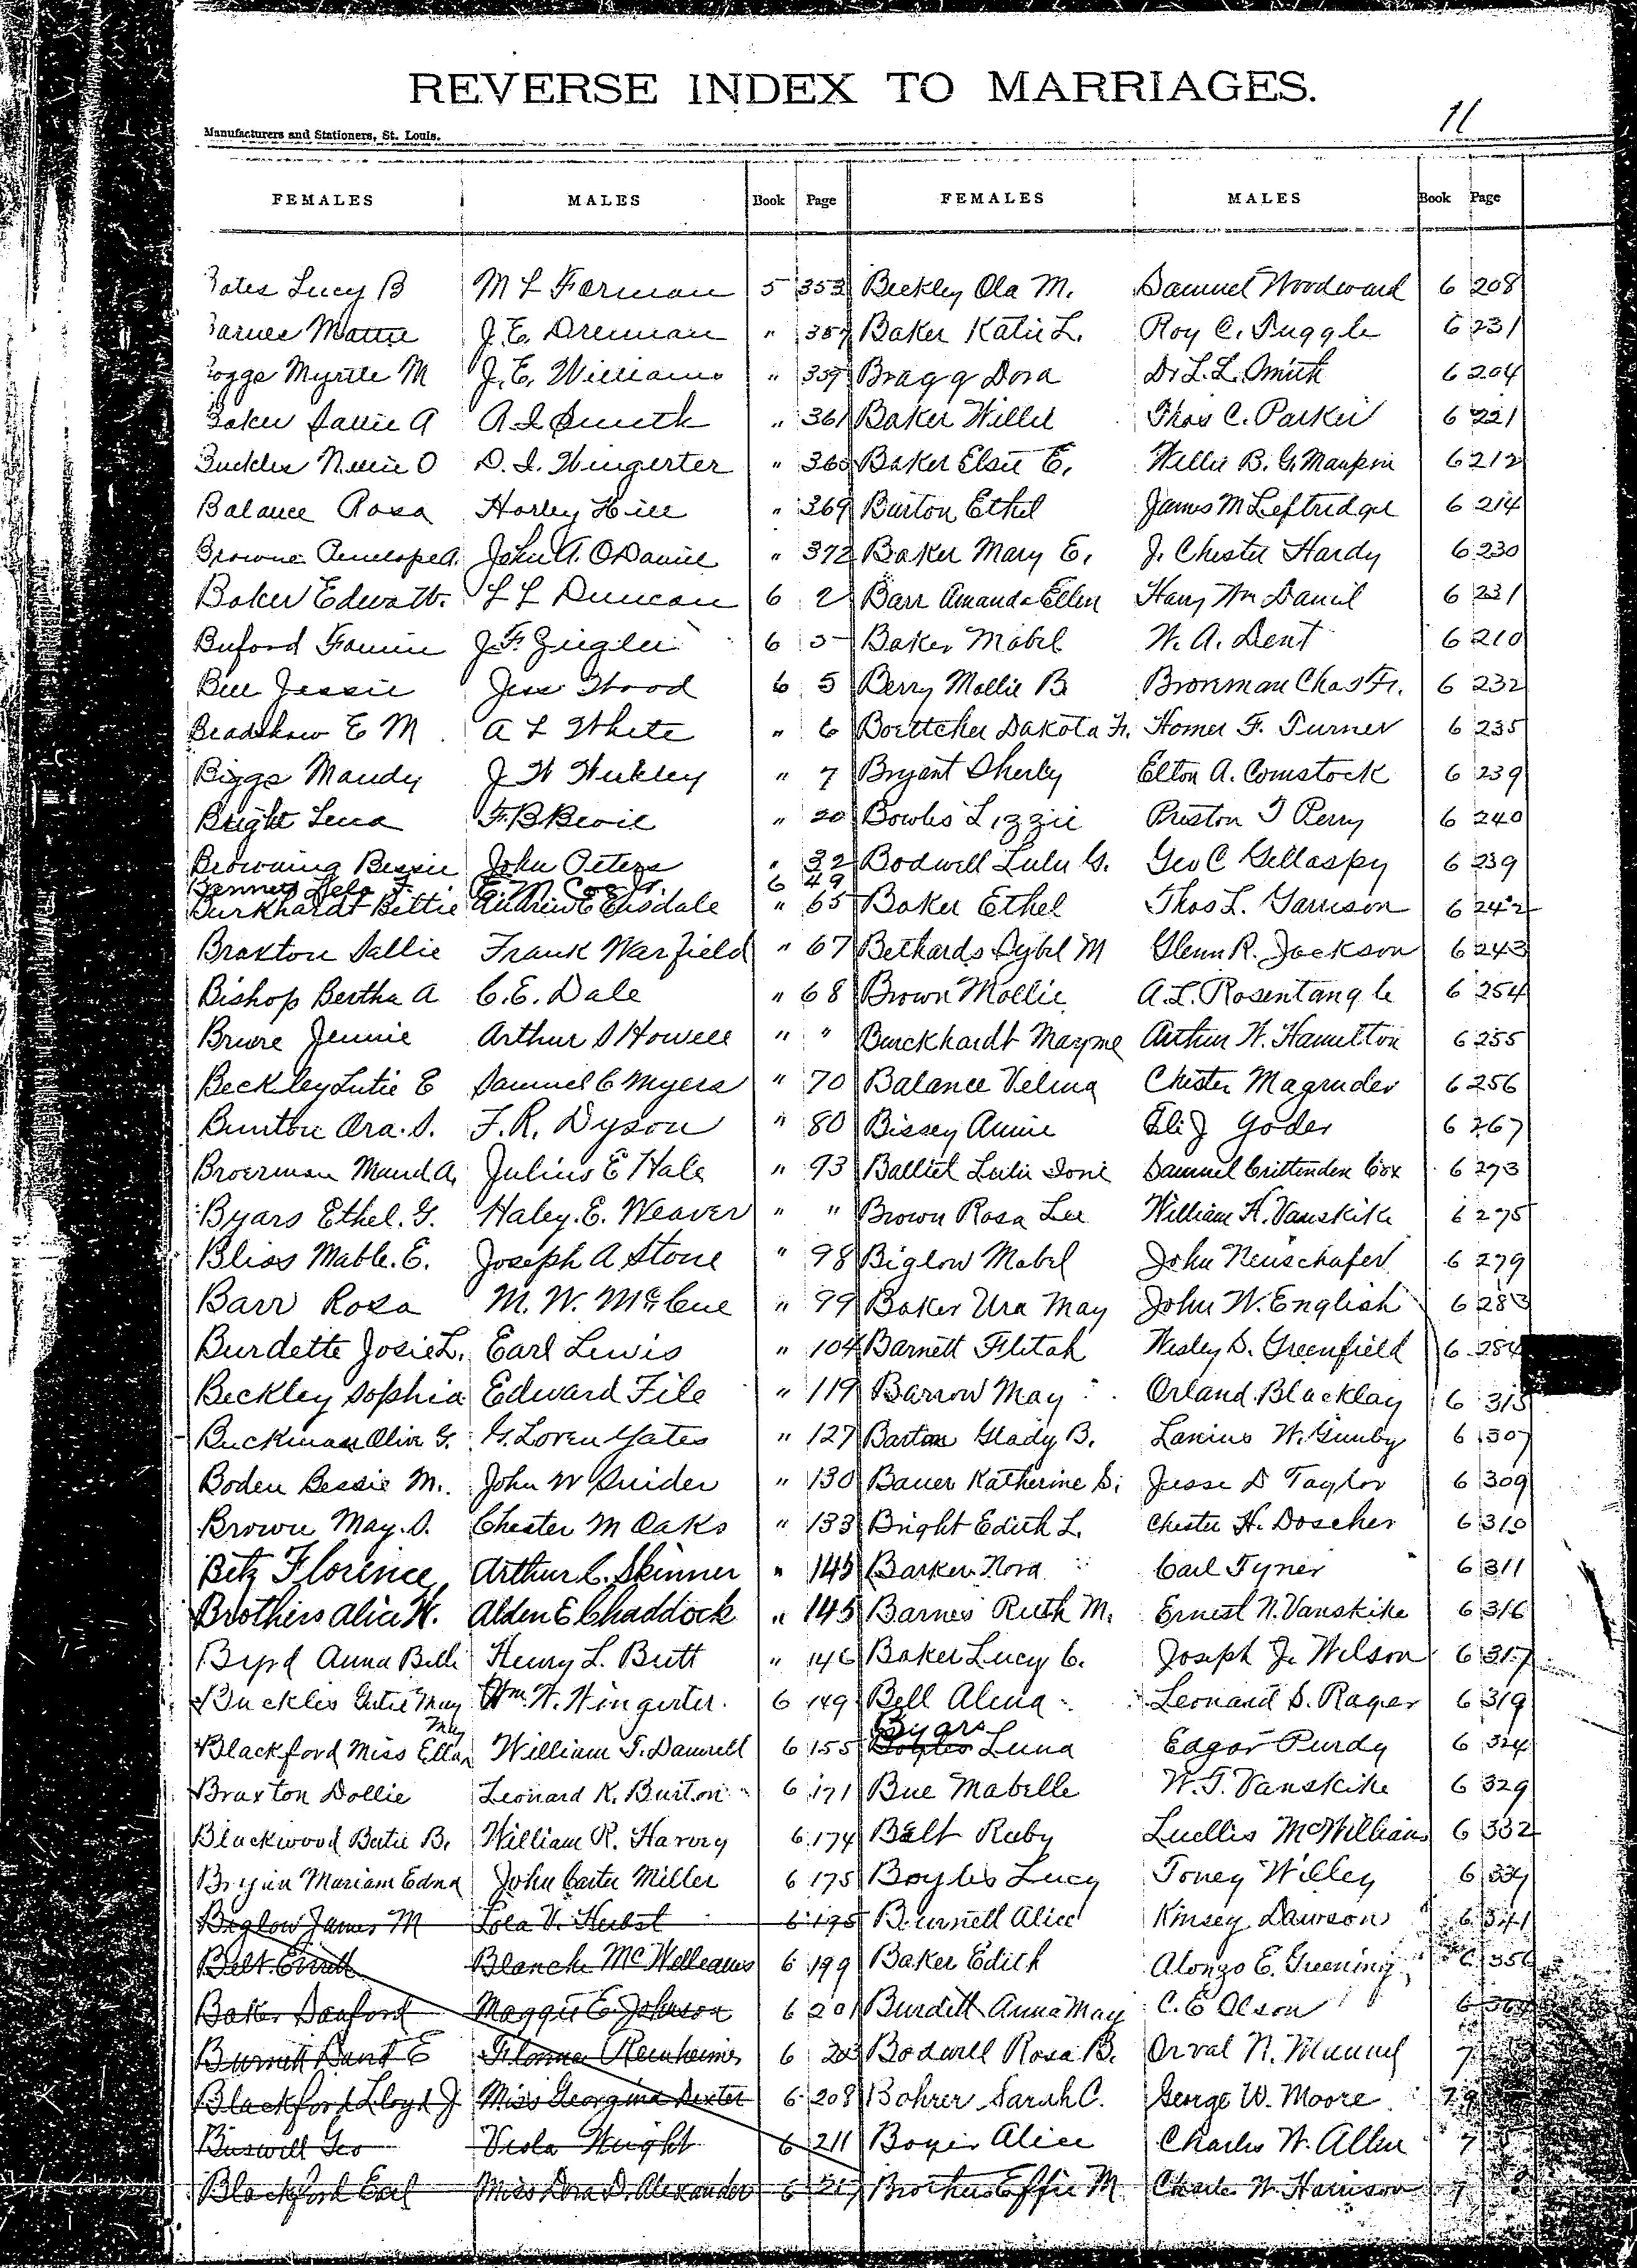 REVERSE INDEX TO MARRIAGES.
11
Manufacturers and Stationers, St. Louis.
FEMALES MALES Book Page FEMALES MALES Book Page
Bates Lucy B M L Forman 5 353 Beckley Ola M. Samuel Woodward 6 208
Barnes Mattie J. E. Drennan " 357 Baker Katie L. Roy C. Tuggle 6 231
Boggs Myrtle M J. E. Williams " 359 Bragg Dora Dr L. L. Smith 6 204
Baker Sallie A A I Smith " 361 Baker Willie Thos C. Parker 6 221
Buckles Nellie O D. I. Wingerter " 360 Baker Elsie E. Willie B. G. Maupin 6 212
Balance Rosa Harley Hill " 369 Burton Ethel James M Leftridge 6 214
Browne Penelope A. John A. O Daniel " 372 Baker Mary E. J. Chester Hardy 6 230
Baker L L Duncan 6 2 Barr Amanda Ellen Harry Wm Daniel 6 231
Buford Fannie J. F. Zeigler 6 5 Baker Mabel W. A. Dent 6 210
Bell Jessie Jess Wood 6 5 Berry Mollie B Bronman Chas Fr. 6 232
Bradshaw E M A L White " 6 Boettcher Dakota Fr. Homer F. Turner 6 235
Biggs Maudy J W Weekley " 7 Bryant Sherly Elton A. Comstock 6 239
Bright Lena F. B Bevil " 20 Bowles Lizzie Preston T Perry 6 240
Browning Bessie John Peters " 32 Bodwell Lulu G. Geo C Gillaspy 6 239
Lela F. E. M. 6 49
Burkhardt Bettie Andrew E Eisdale " 65 Baker Ethel Thos L. Garrison 6 242
Braxton Sallie Frank Warfield " 67 Bethards Sybel M Glenn R. Jackson 6 243
Bishop Bertha A C. E. Dale " 68 Brown Mollie A. L. Rosentangle 6 254
Briere Jennie Arthur S Howell " " Burckhardt Mayme Arthur W. Hamilton 6 255
Beckley Lutie E Samuel C Myers " 70 Balance Velma Chester Magruder 6 256
Bunton Ora. S. F. R. Dyson " 80 Bissey Annie Eli J Yoder 6 267
Broerman Maud A. Julius E Hale " 93 Balliet Lulu Ione Samuel Crittenden Cox 6 273
Byars Ethel. G. Haley. E. Weaver " " Brown Rosa Lee William H. Vanskike 6 275
Bliss Mable. E. Joseph A Stone " 98 Biglow Mabel John Neuschafer 6 279
Barr Rosa M. W. McCue " 99 Baker Ura May John W. English 6 283
Burdette Josie L. Earl Lewis " 104 Barnett Flitah Wesley S. Greenfield 6 284
Beckley Sophia Edward File " 119 Barrow May Orland Blacklay 6 315
Buckman Olive G. G. Loren Yates " 127 Barton Glady B. Lanius W. Gunby 6 307
Boden Bessie M. John W Snider " 130 Bauer Katherine S. Jesse D Taylor 6 309
Brown May. S. Chester M Oaks " 133 Bright Edith L. Chester H. Doscher 6 310
Betz Florence Arthur C. Skinner " 145 Barker Nora Carl Tyner 6 311
Brothers Alice W. Alden E Chaddock " 145 Barnes Ruth M. Ernest N. Vanskike 6 316
Byrd Anna Belle Henry L. Britt " 146 Baker Lucy C. Joseph J. Wilson 6 317
Buckles Gutie May Wm. W. Wingerter. 6 149 Bell Alma Leonard S. Rager 6 319
May Byars
Blackford Miss Ella William T. Damrell 6 155 Boyles Luna Edgar Purdy 6 324
Braxton Dollie Leonard K. Burton 6 171 Bue Mabelle W. T. Vanskike 6 329
Blackwood Bertie B. William R. Harvey 6 174 Belt Ruby Luellis McWilliams 6 332
Bryan Mariam Edna John Carter Miller 6 175 Boyles Lucy Toney Willey 6 334
Biglow James M Lola V. Herbst 6 195 Burnett Alice Kinsey Dawson 6 341
Belt Everett Blanch McWilleams 6 199 Baker Edith Alonzo E. Greening 6 356
Baker Sanford Maggie E Johnson 6 201 Burdett Anna May C. E Olson 6 364
Burnett Bant E Reinheimer 6 203 Bodwell Rosa B. Orval N. Munuel 7
Blackford Lloyd J Miss Georgina Dexter 6 208 Bohrer Sarah C. George W. Moore 7 9
Buswell Geo Viola Wright 6 211 Boyer Alice Charles W. Allen 7
Blackford Earl Miss Dora D. Alexander 6 217 Brothers Effie M Charles W. Harrison 7